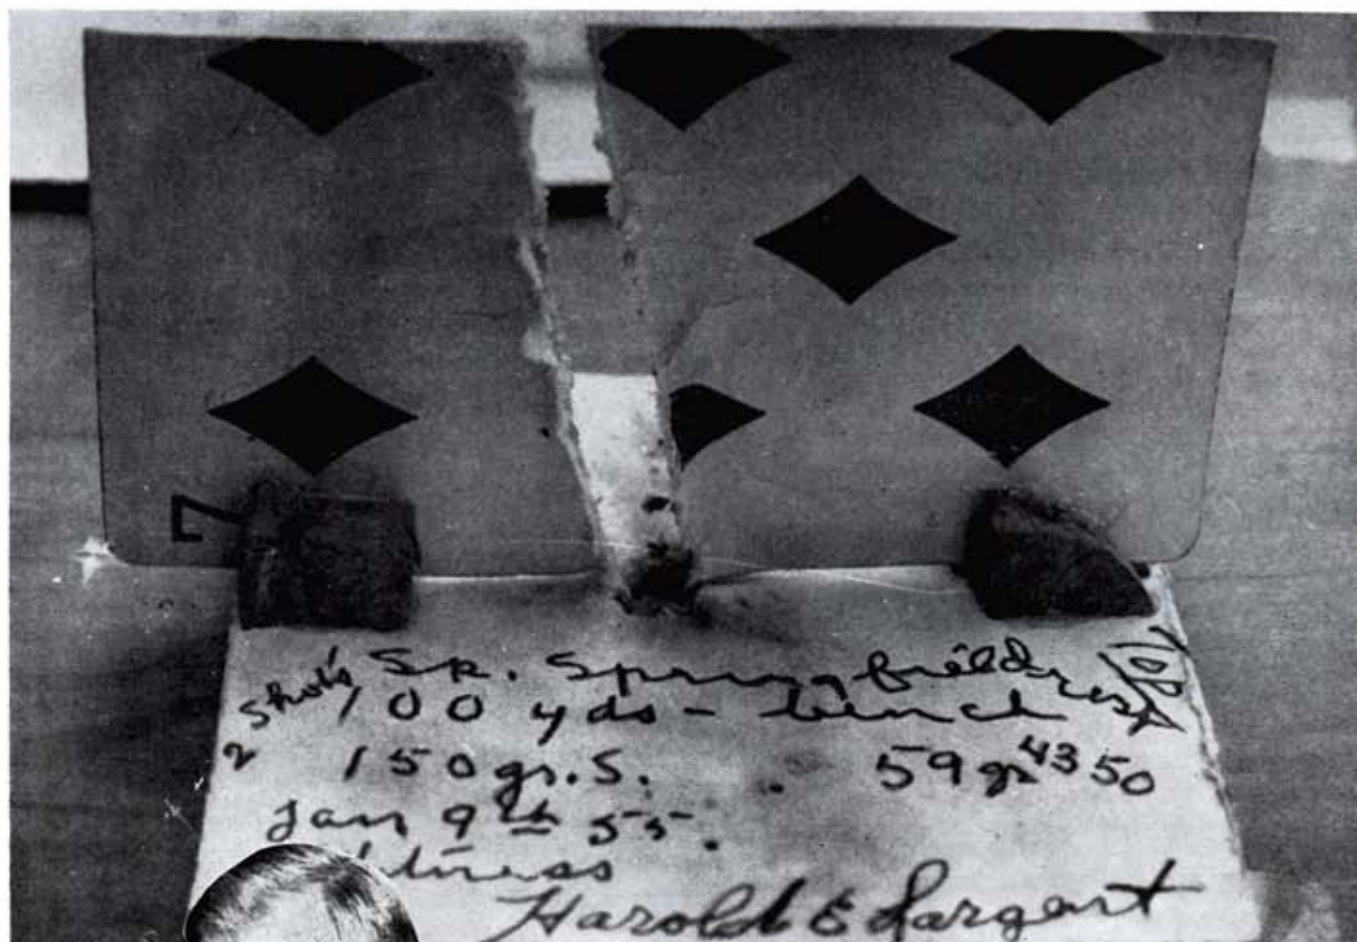 7
2 Shots Sp. Springfield
100 yds - bench rest
150 gr. S. 59 gr 4350
Jan 9th 55.
Witness
Harold E Sargent